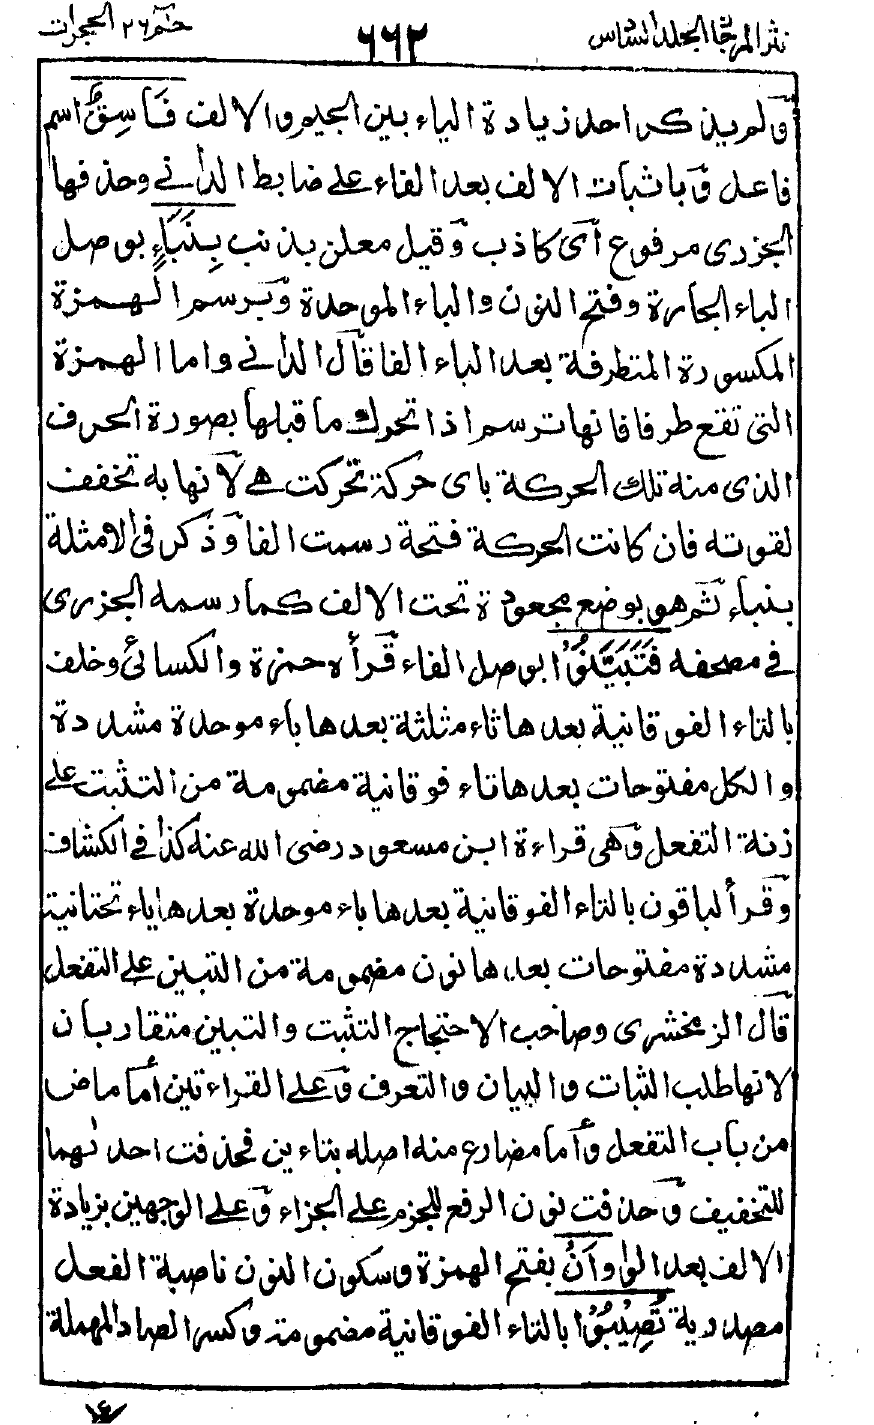 نثر المرجان الجلد السادس ٦٦٢ حٰمٓ ٢٦ الحجرات
ولم يذكر احد زيادة الياء بين الجيم والالف فَاسِقٌ اسم
فاعل وباثبات الالف بعد الفاء على ضابط الدانى وحذفها
الجزرى مرفوع اى كاذب وقيل معلن بذنب بِنَبَاءٍ بوصل
الباء الجارة وفتح النون والباء الموحدة وبرسم الهمزة
المكسورة المتطرفة بعد الباء الفا قال الدانى واما الهمزة
التى تقع طرفا فانها ترسم اذا تحرك ما قبلها بصورة الحرف
الذى منه تلك الحركة باى حركة تحركت هى لانها به تخفف
لقوته فان كانت الحركة فتحة رسمت الفا وذكر فى الامثلة
بنباء ثم هو بوضع مجعودة تحت الالف كما رسمه الجزرى
فى مصحفه فَتَبَيَّنُوْا بوصل الفاء قرأه حمزة والكسائى وخلف
بالتاء الفوقانية بعدها ثاء مثلثة بعدها باء موحدة مشددة
والكل مفتوحات بعدها تاء فوقانية مضمومة من التثبت على
زنة التفعل وهى قراءة ابن مسعود رضى الله عنه كذا فى الكشاف
وقرأ الباقون بالتاء الفوقانية بعدها باء موحدة بعدها ياء تحتانية
مشددة مفتوحات بعدها نون مضمومة من التبين على التفعل
قال الزمخشرى وصاحب الاحتجاج التثبت والتبين متقاربان
لانها طلب الثبات والبيان والتعرف وعلى القراءتين أما ماض
من باب التفعل وأما مضارع منه اصله بتاءين فحذفت احدٰهما
للتخفيف وحذفت نون الرفع للجزم على الجزاء وعلى الوجهين بزيادة
الالف بعد الواو اَنْ بفتح الهمزة وسكون النون ناصبة الفعل
مصدرية تُصِيْبُوْا بالتاء الفوقانية مضمومة وكسر الصاد المهملة